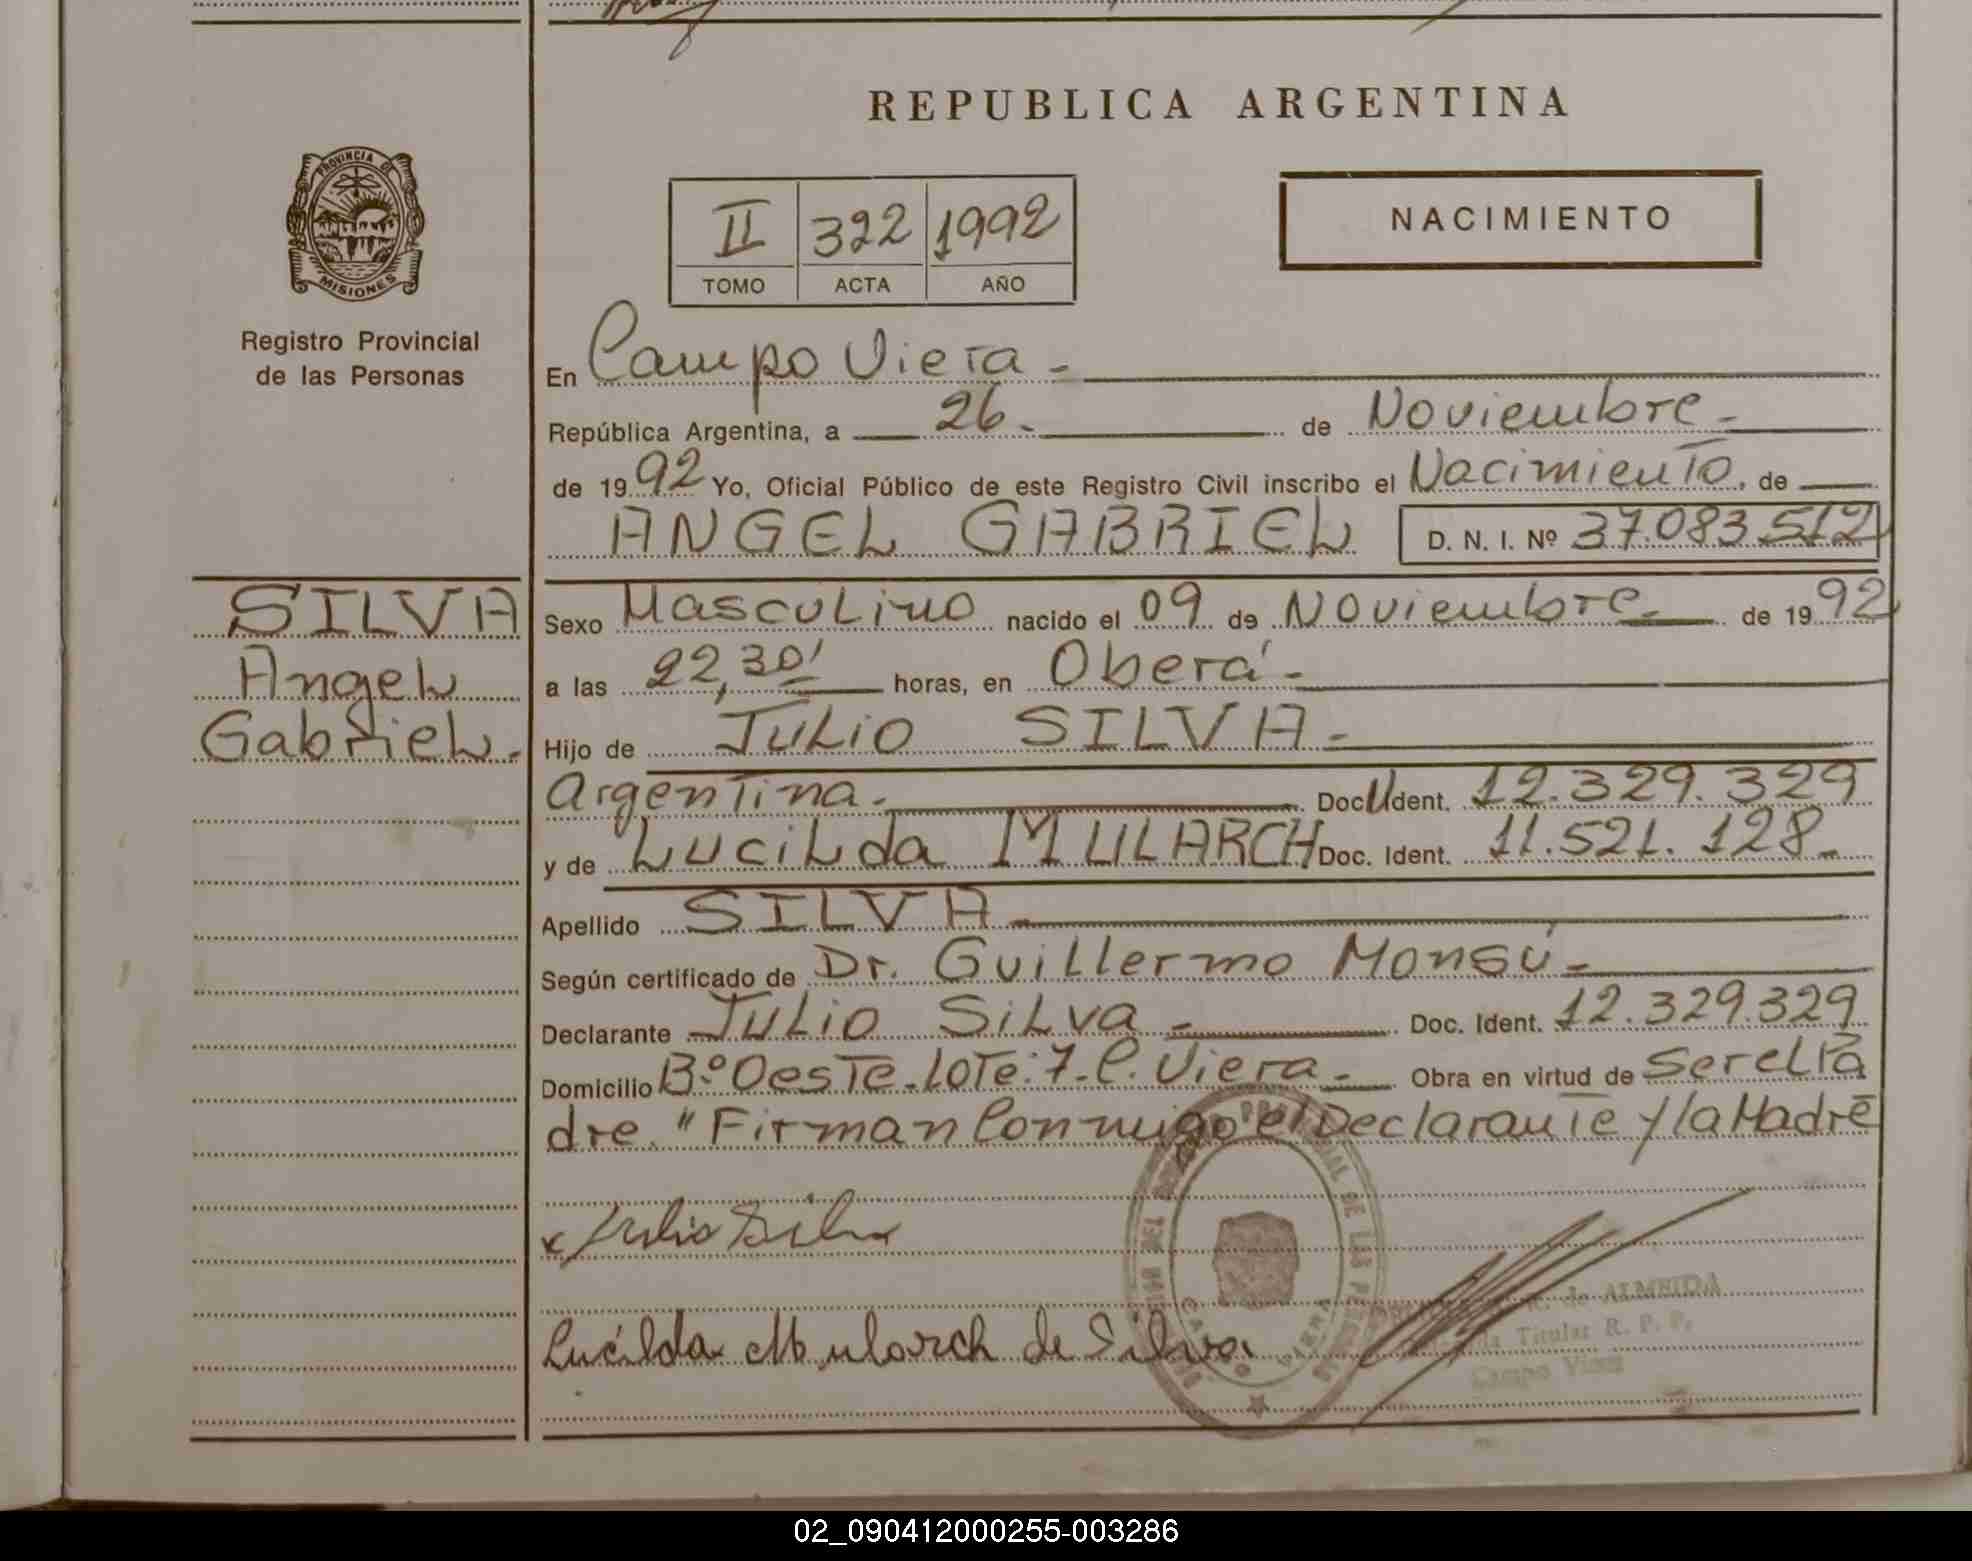 REPUBLICA ARGENTINA
PROVINCIA DE
MISIONES
Registro Provincial
de las Personas
II 322 1992
TOMO ACTA AÑO
NACIMIENTO
En Campo Viera -
República Argentina, a 26. de Noviembre -
de 1992 Yo, Oficial Público de este Registro Civil inscribo el Nacimiento. de
ANGEL GABRIEL D. N. I. Nº 37.083.512
SILVA
Angel
Gabriel.-
Sexo Masculino nacido el 09 de Noviembre - de 1992
a las 22,30' horas, en Oberá -
Hijo de Julio SILVA -
Argentina. Doc U Ident. 12.329.329
y de Lucilda MULARCH Doc. Ident. 11.521.128 -
Apellido SILVA -
Según certificado de Dr. Guillermo Monsú -
Declarante Julio Silva - Doc. Ident. 12.329.329
Domicilio Bº. Oeste. Lote: 7 - C. Viera - Obra en virtud de Ser el Pa
dre. "Firman Conmigo el Declarante y la Madre
x Julio Silva
Lucilda Mularch de Silva
de ALMEIDA
Titular R. P. P.
Campo Viera
DEL PROVINCIAL DE LAS PERSONAS
CAMPO VIERA
02_090412000255-003286